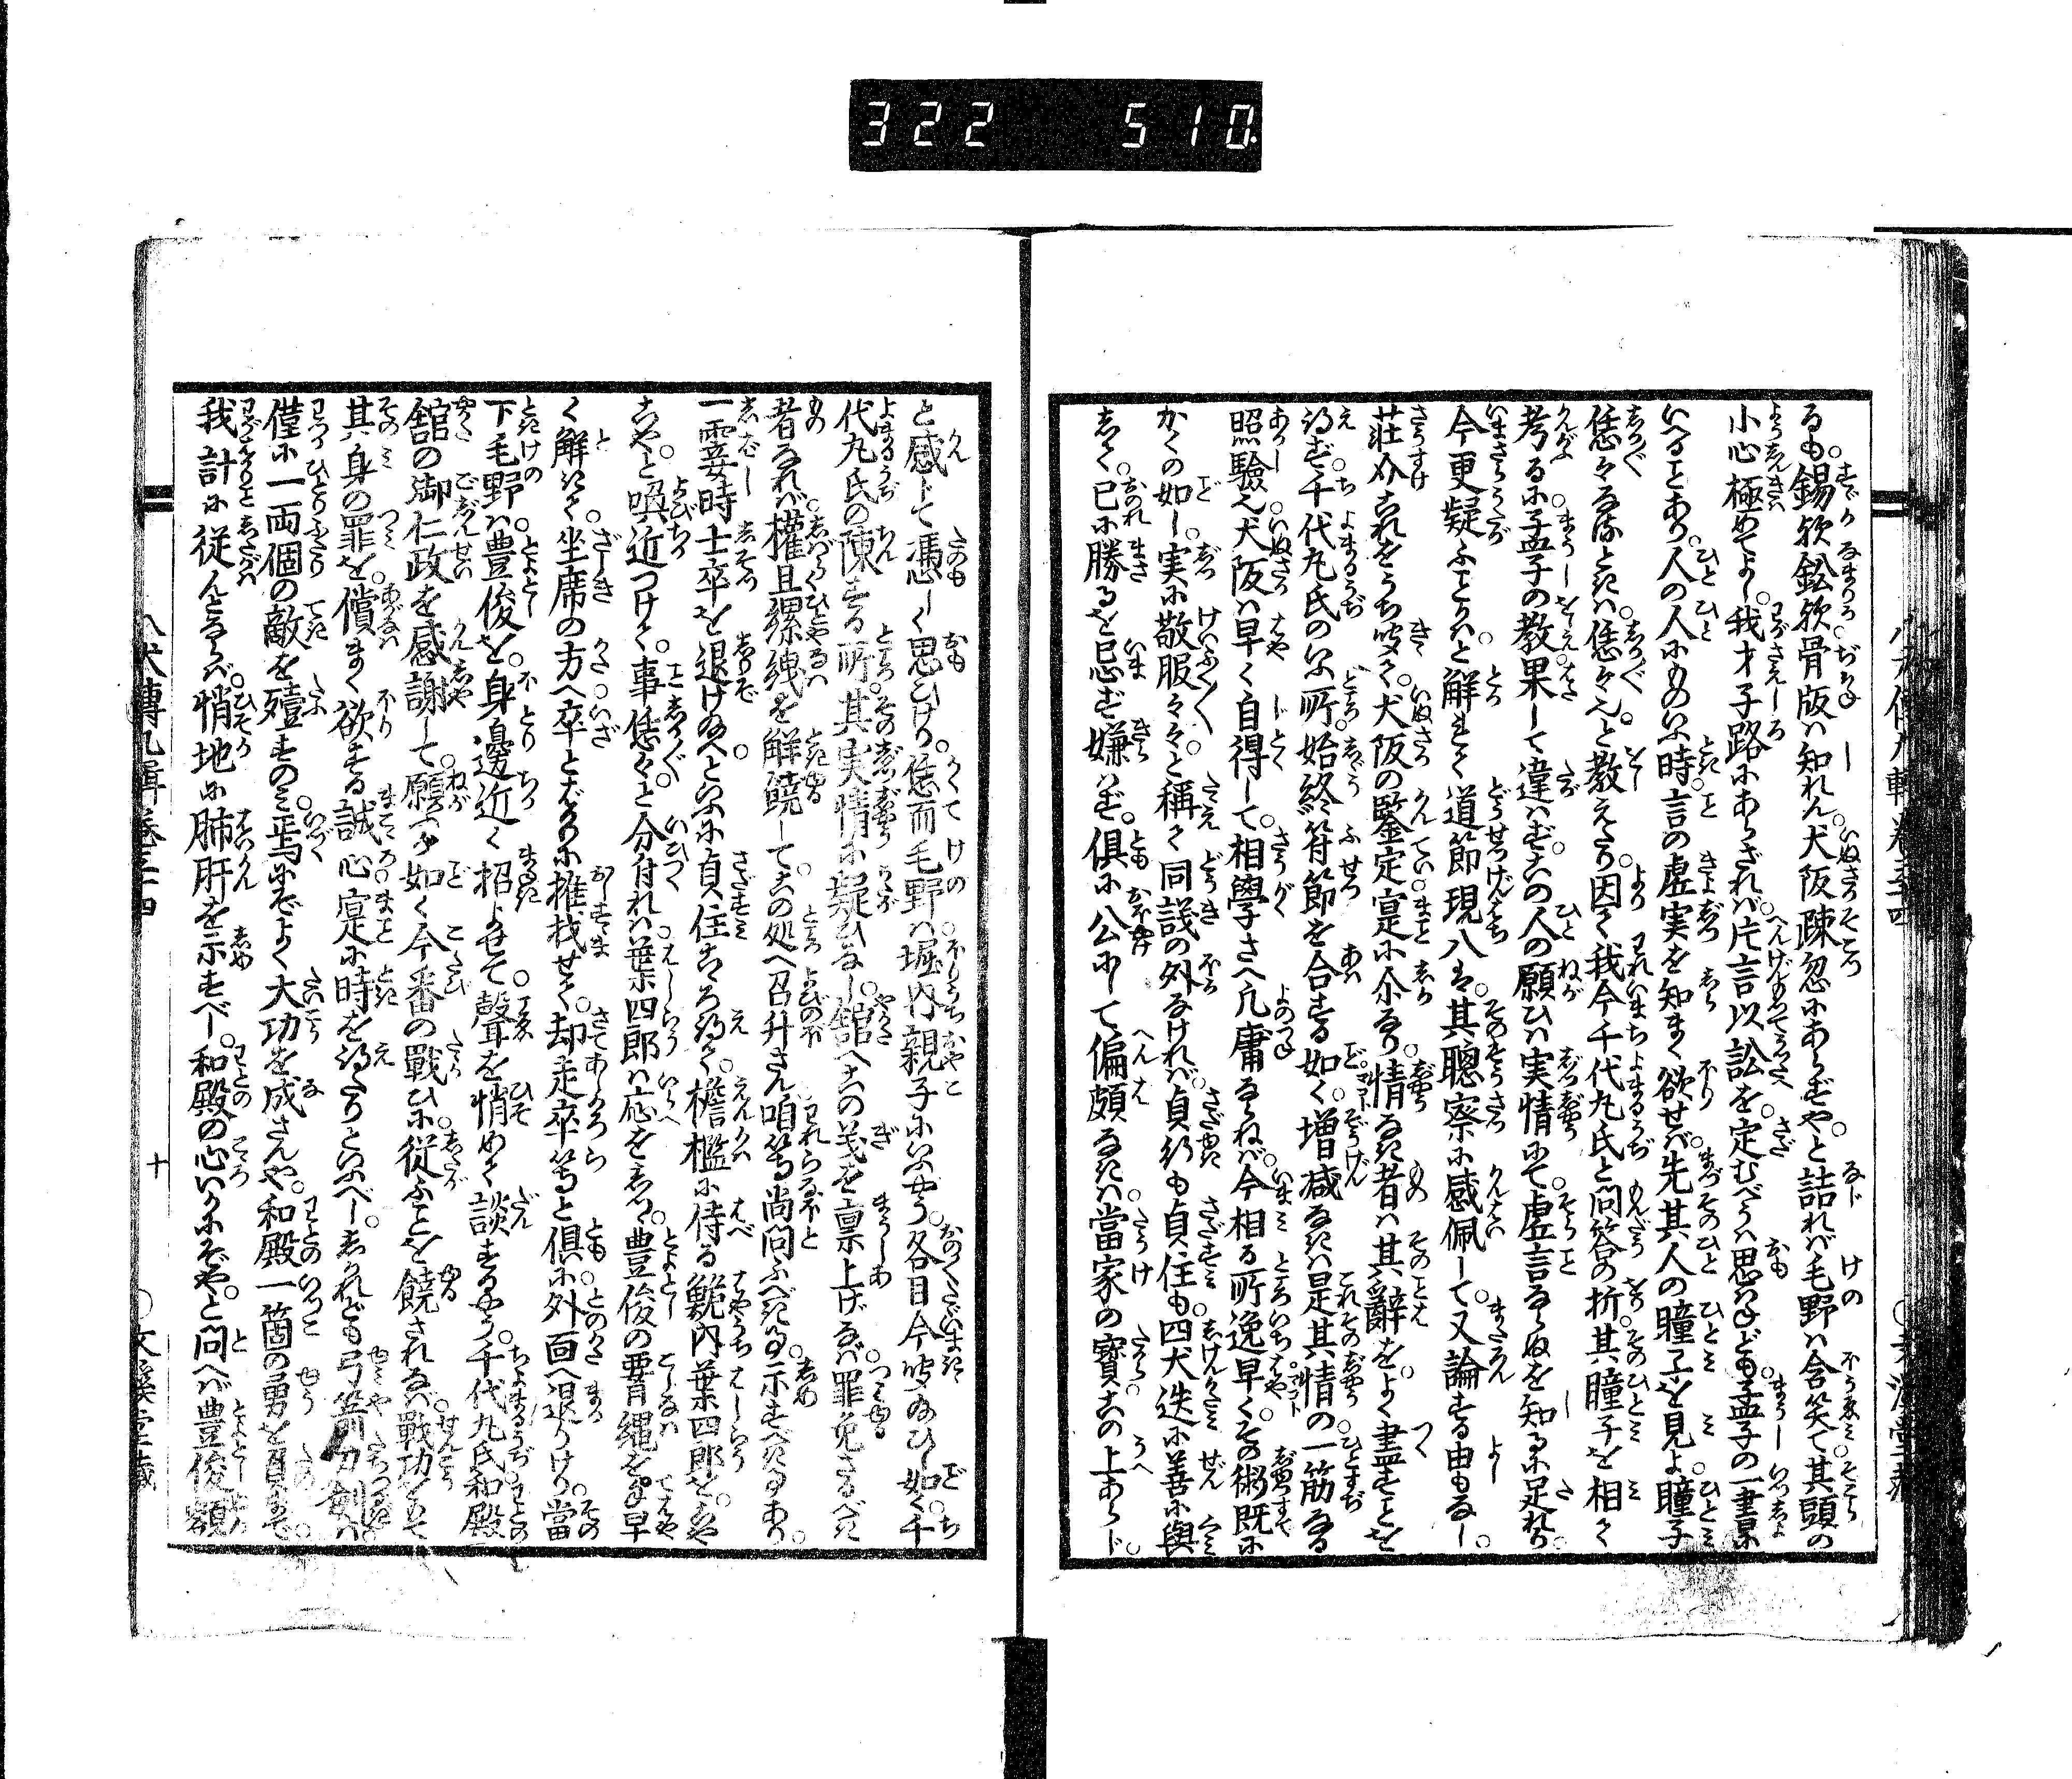 322 510
るも。錫欤鈆欤骨版は知れん。犬阪疎忽にあらずや。と詰れば毛野は含笑て其頭の
小心極めてよし。我才子路にあらざれば。片言以訟を。定むべうは思はねども。孟子の一書に
いへることあり。人の人にものいふ時。言の虚実を知まく欲せば。先其人の瞳子を見よ。瞳子
恁々なるときは。恁々也。と教えたり。因て我今千代丸氏と問答の折。其瞳子を相て
考るに。孟子の教果して違はず。この人の願ひは実情にて。虚言ならぬを知るに足れり。
今更疑ふことかは。と解れて道節現八は。其聰察に感佩して。又論ずる由もなし。
莊介これをうち听て。犬阪の鑒定寔に介なり。情なき者は其辭を。よく盡すことを
得ず。千代丸氏のいふ所。始終符節を合する如く。増减なきは是其情の一筋なる
照驗也。犬阪は早く自得して。相學さへ凡庸ならねば。今相る所逸早くその術既に
かくの如し。実に敬服々々。と稱て同議の外なければ。貞行も貞住も。四犬迭に善に與
しく。己に勝るを忌ず嫌はず。俱に公にして偏頗なきは。當家の寶この上あらじ。
と感じて憑しく思ひけり。恁而毛野は。堀内親子にいふやう。各目今听給ひし如く。千
代丸氏の陳ずる所。其実情に疑ひなし。舘へこの義を禀上げなば。罪免さるべき
者なれば。權且縲絏を解饒して。この処へ召升さん。咱等尚問ふべき事。示すべき事あり。
一霎時士卒を退け給へといふに貞住こゝろ得て。檐檻に侍る鯇内葉四郎を。や
よや。と喚近つけて。事恁々。と分付れは。葉四郎は応をしつ。豊俊の䩗縄を。手早
く解きて。坐席の方へ卒とばかりに推找せて。却走卒等と俱に。外面へ退りけり。當
下毛野は豊俊を。身邊近く招よせて。聲を悄めて談ずるやう。千代丸氏。和殿
舘の御仁政を感謝して。願ふ如く今番の戰ひに。従ふことを饒されなば。戰功をもて
其身の罪を。償まく欲する誠心。寔に時を得たりといふべし。しかれども弓箭刀劍は
僅に一両個の敵を殪すのみ。焉にぞよく大功を成さんや。和殿一箇の勇を負まで。
我計に従んとならば。悄地に肺肝を示すべし。和殿の心いかにぞや。と問へば豊俊額
八犬傳九輯卷三十四
十
〇文溪堂藏